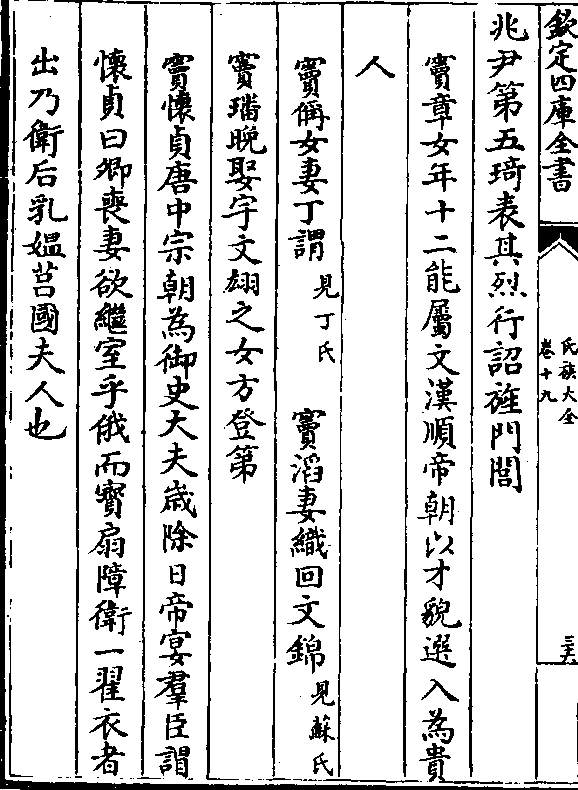 欽定四庫全書
氏族大全
卷十九
三六
兆尹第五琦表其烈行詔旌門閭
竇章女年十二能屬文漢順帝朝以才貌選入為貴
人
竇偁女妻丁謂見丁氏 竇滔妻織回文錦見蘇氏
竇璠晚娶宇文翃之女方登第
竇懷貞唐中宗朝為御史大夫歲除日帝宴羣臣謂
懷貞曰卿喪妻欲繼室乎俄而寳扇障衛一翟衣者
出乃衛后乳媼莒國夫人也